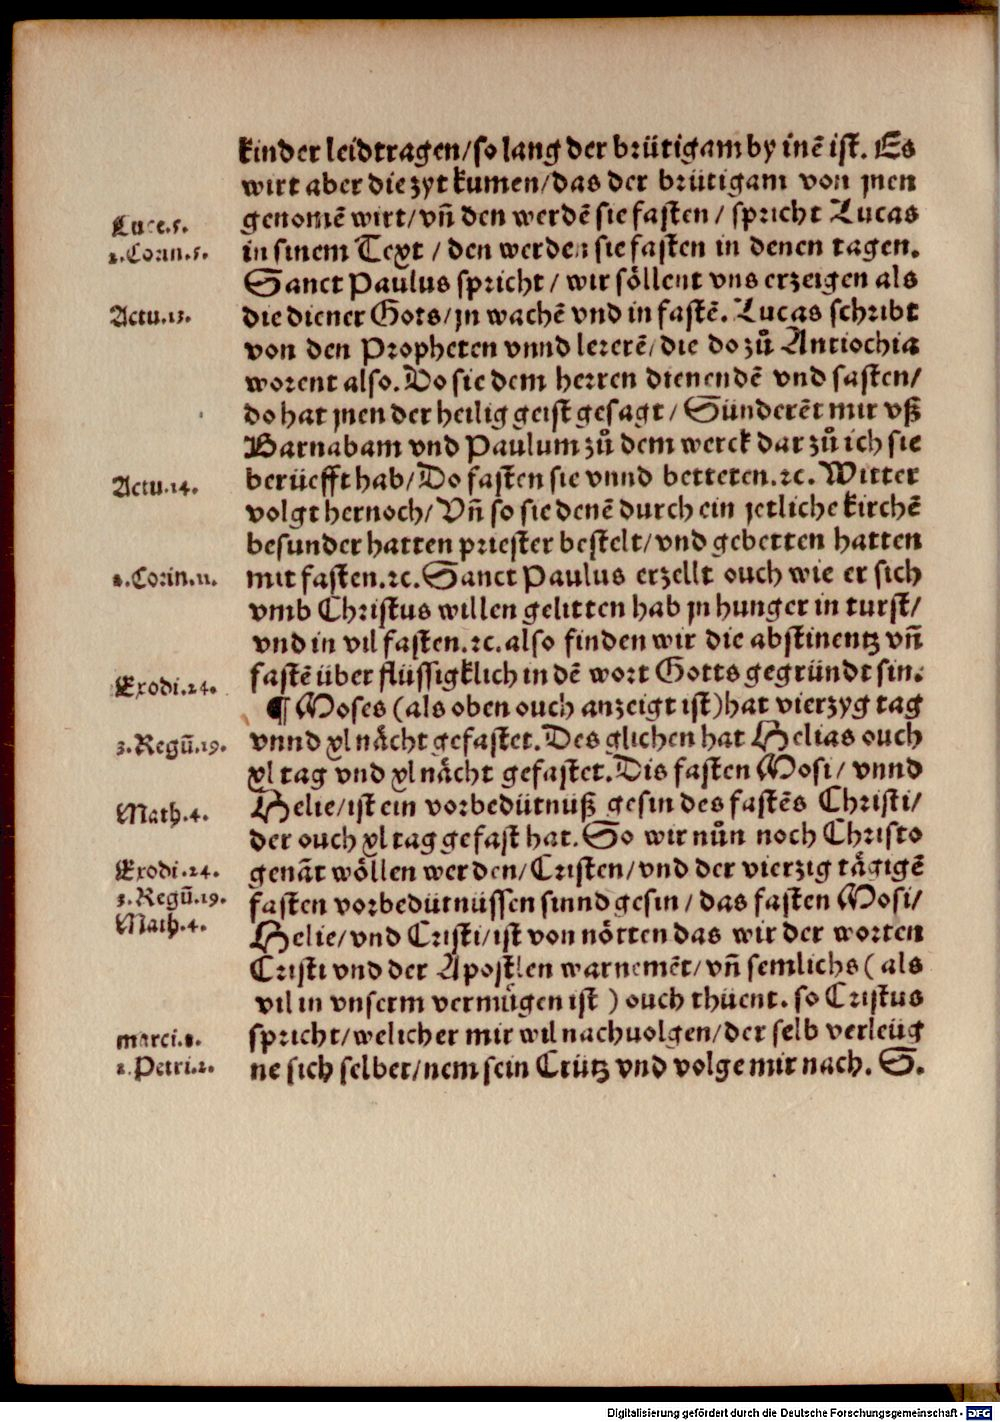 kinder leidtragen/so lang der brütigam by inē ist. Es
wirt aber die zyt kumen/das der brütigam von jnen
genomē wirt/vñ den werdē sie fasten / spricht Lucas
Luce.5.
in sinem Text / den werden sie fasten in denen tagen.
2.Corin.5.
Sanct Paulus spricht / wir söllent vns erzeigen als
die diener Gots/jn wachē vnd in fastē. Lucas schribt
Actu.13.
von den Propheten vnnd lererē/die do zů Antiochia
worent also. Do sie dem herren dienendē vnd fasten/
do hat jnen der heilig geist gesagt / Sünderēt mir vß
Barnabam vnd Paulum zů dem werck dar zů ich sie
berüefft hab/Do fasten sie vnnd betteten.ꝛc. Witter
Actu.14.
volgt hernoch/Vñ so sie denē durch ein jetliche kirchē
besunder hatten priester bestelt/vnd gebetten hatten
mit fasten.ꝛc. Sanct Paulus erzellt ouch wie er sich
2.Corin.11.
vmb Christus willen gelitten hab jn hunger in turst/
vnd in vil fasten.ꝛc. also finden wir die abstinentz vñ
fastē über flüssigklich in dē wort Gotts gegründt sin.
Exodi.24.
¶ Moses (als oben ouch anzeigt ist) hat vierzyg tag
vnnd xl nächt gefastet. Des glichen hat Helias ouch
3.Regū.19.
xl tag vnd xl nächt gefastet. Dis fasten Mosi/ vnnd
Helie/ist ein vorbedütnüß gesin des fastēs Christi/
Math.4.
der ouch xl tag gefast hat. So wir nůn noch Christo
genāt wöllen werden/Cristen/vnd der vierzig tägigē
Exodi.24.
fasten vorbedütnüssen sinnd gesin / das fasten Mosi/
3.Regū.19.
Helie/vnd Cristi/ist von nötten das wir der worten
Math.4.
Cristi vnd der Apostlen warnemēt/vñ semlichs ( als
vil in vnserm vermügen ist ) ouch thüent. so Cristus
spricht/welicher mir wil nachuolgen/der selb verleüg
marci.8.
ne sich selber/nem sein Crütz vnd volge mir nach. S.
1.Petri.2.
Digitalisierung gefördert durch die Deutsche Forschungsgemeinschaft - DFG